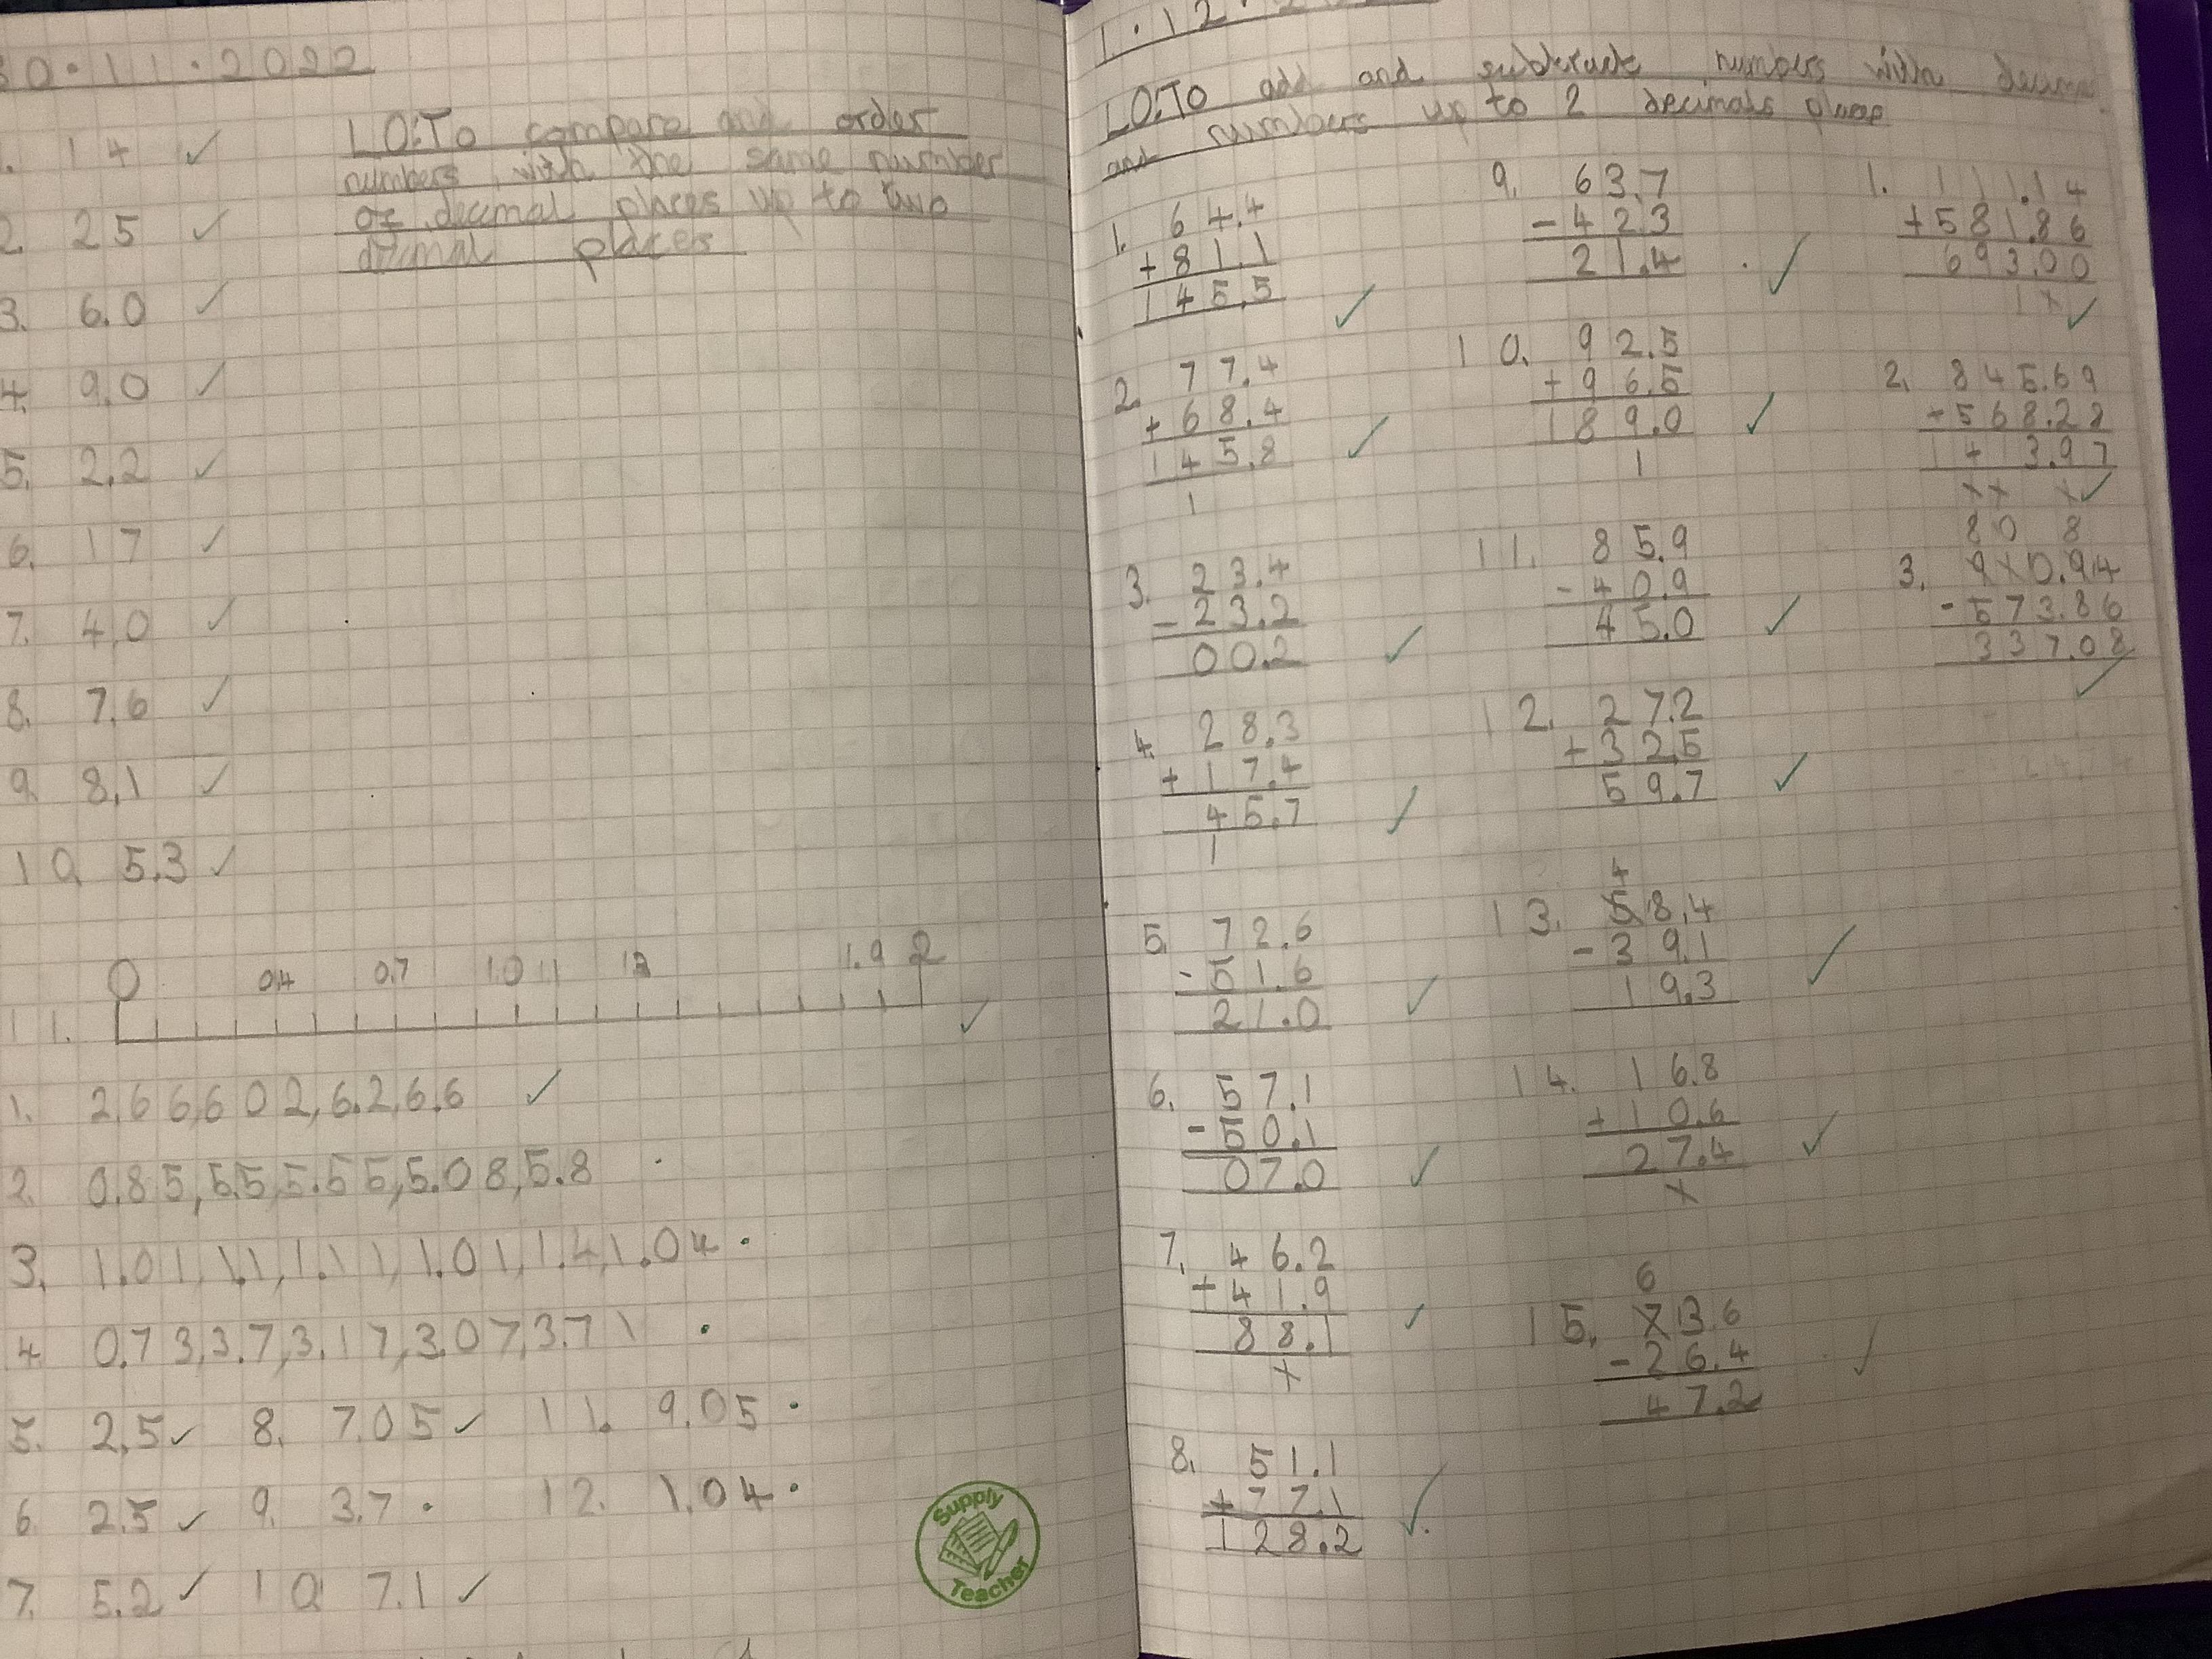 30.11.2022
LO:To compare and order
numbers with the same number
of decimal places up to two
decimal places
1. 14 ✓
2. 25 ✓
3. 6.0 ✓
4. 9.0 ✓
5. 2.2 ✓
6. 17 ✓
7. 4.0 ✓
8. 7.6 ✓
9. 8.1 ✓
10. 5.3 ✓
0 0.4 0.7 1.0 1.1 1.9 2
11. ✓
1. 2.6 6,6 0 2,6.2,6.6 ✓
2. 0.85,5.5,5.55,5.08,5.8 .
3. 1.01,1.1,1.11,1.01,1.4,1.04 .
4. 0.73,3.7,3.17,3.07,3.71 .
5. 2.5 ✓ 8. 7.05 ✓ 11. 9.05 .
6. 2.5 ✓ 9. 3.7 . 12. 1.04 .
7. 5.2 ✓ 10. 7.1 ✓
Supply
Teacher
1.12.
LO:To add and subtrack numbers with
and numbers up to 2 decimals place
1. 64.4
+81.1
145.5 ✓
2. 77.4
+68.4
145.8 ✓
1
3. 23.4
-23.2
00.2 ✓
4. 28.3
+17.4
45.7 ✓
1
5. 72.6
-51.6
21.0 ✓
6. 57.1
-50.1
07.0 ✓
7. 46.2
+41.9
88.1 ✓
1
8. 51.1
+77.1
128.2 ✓
9. 63.7
-423
21.4 ✓
10. 92.5
+96.5
189.0 ✓
1
11. 85.9
-40.9
45.0 ✓
12. 27.2
+32.5
59.7 ✓
4
13. 58.4
-39.1
19.3 ✓
14. 16.8
+10.6
27.4 ✓
1
6
15. 73.6
-26.4
47.2 ✓
1. 111.14
+581.86
693.00
1 1 ✓
2. 845.69
+568.28
1413.97
1 1 1 ✓
80 8
3. 910.94
-573.86
337.08 ✓